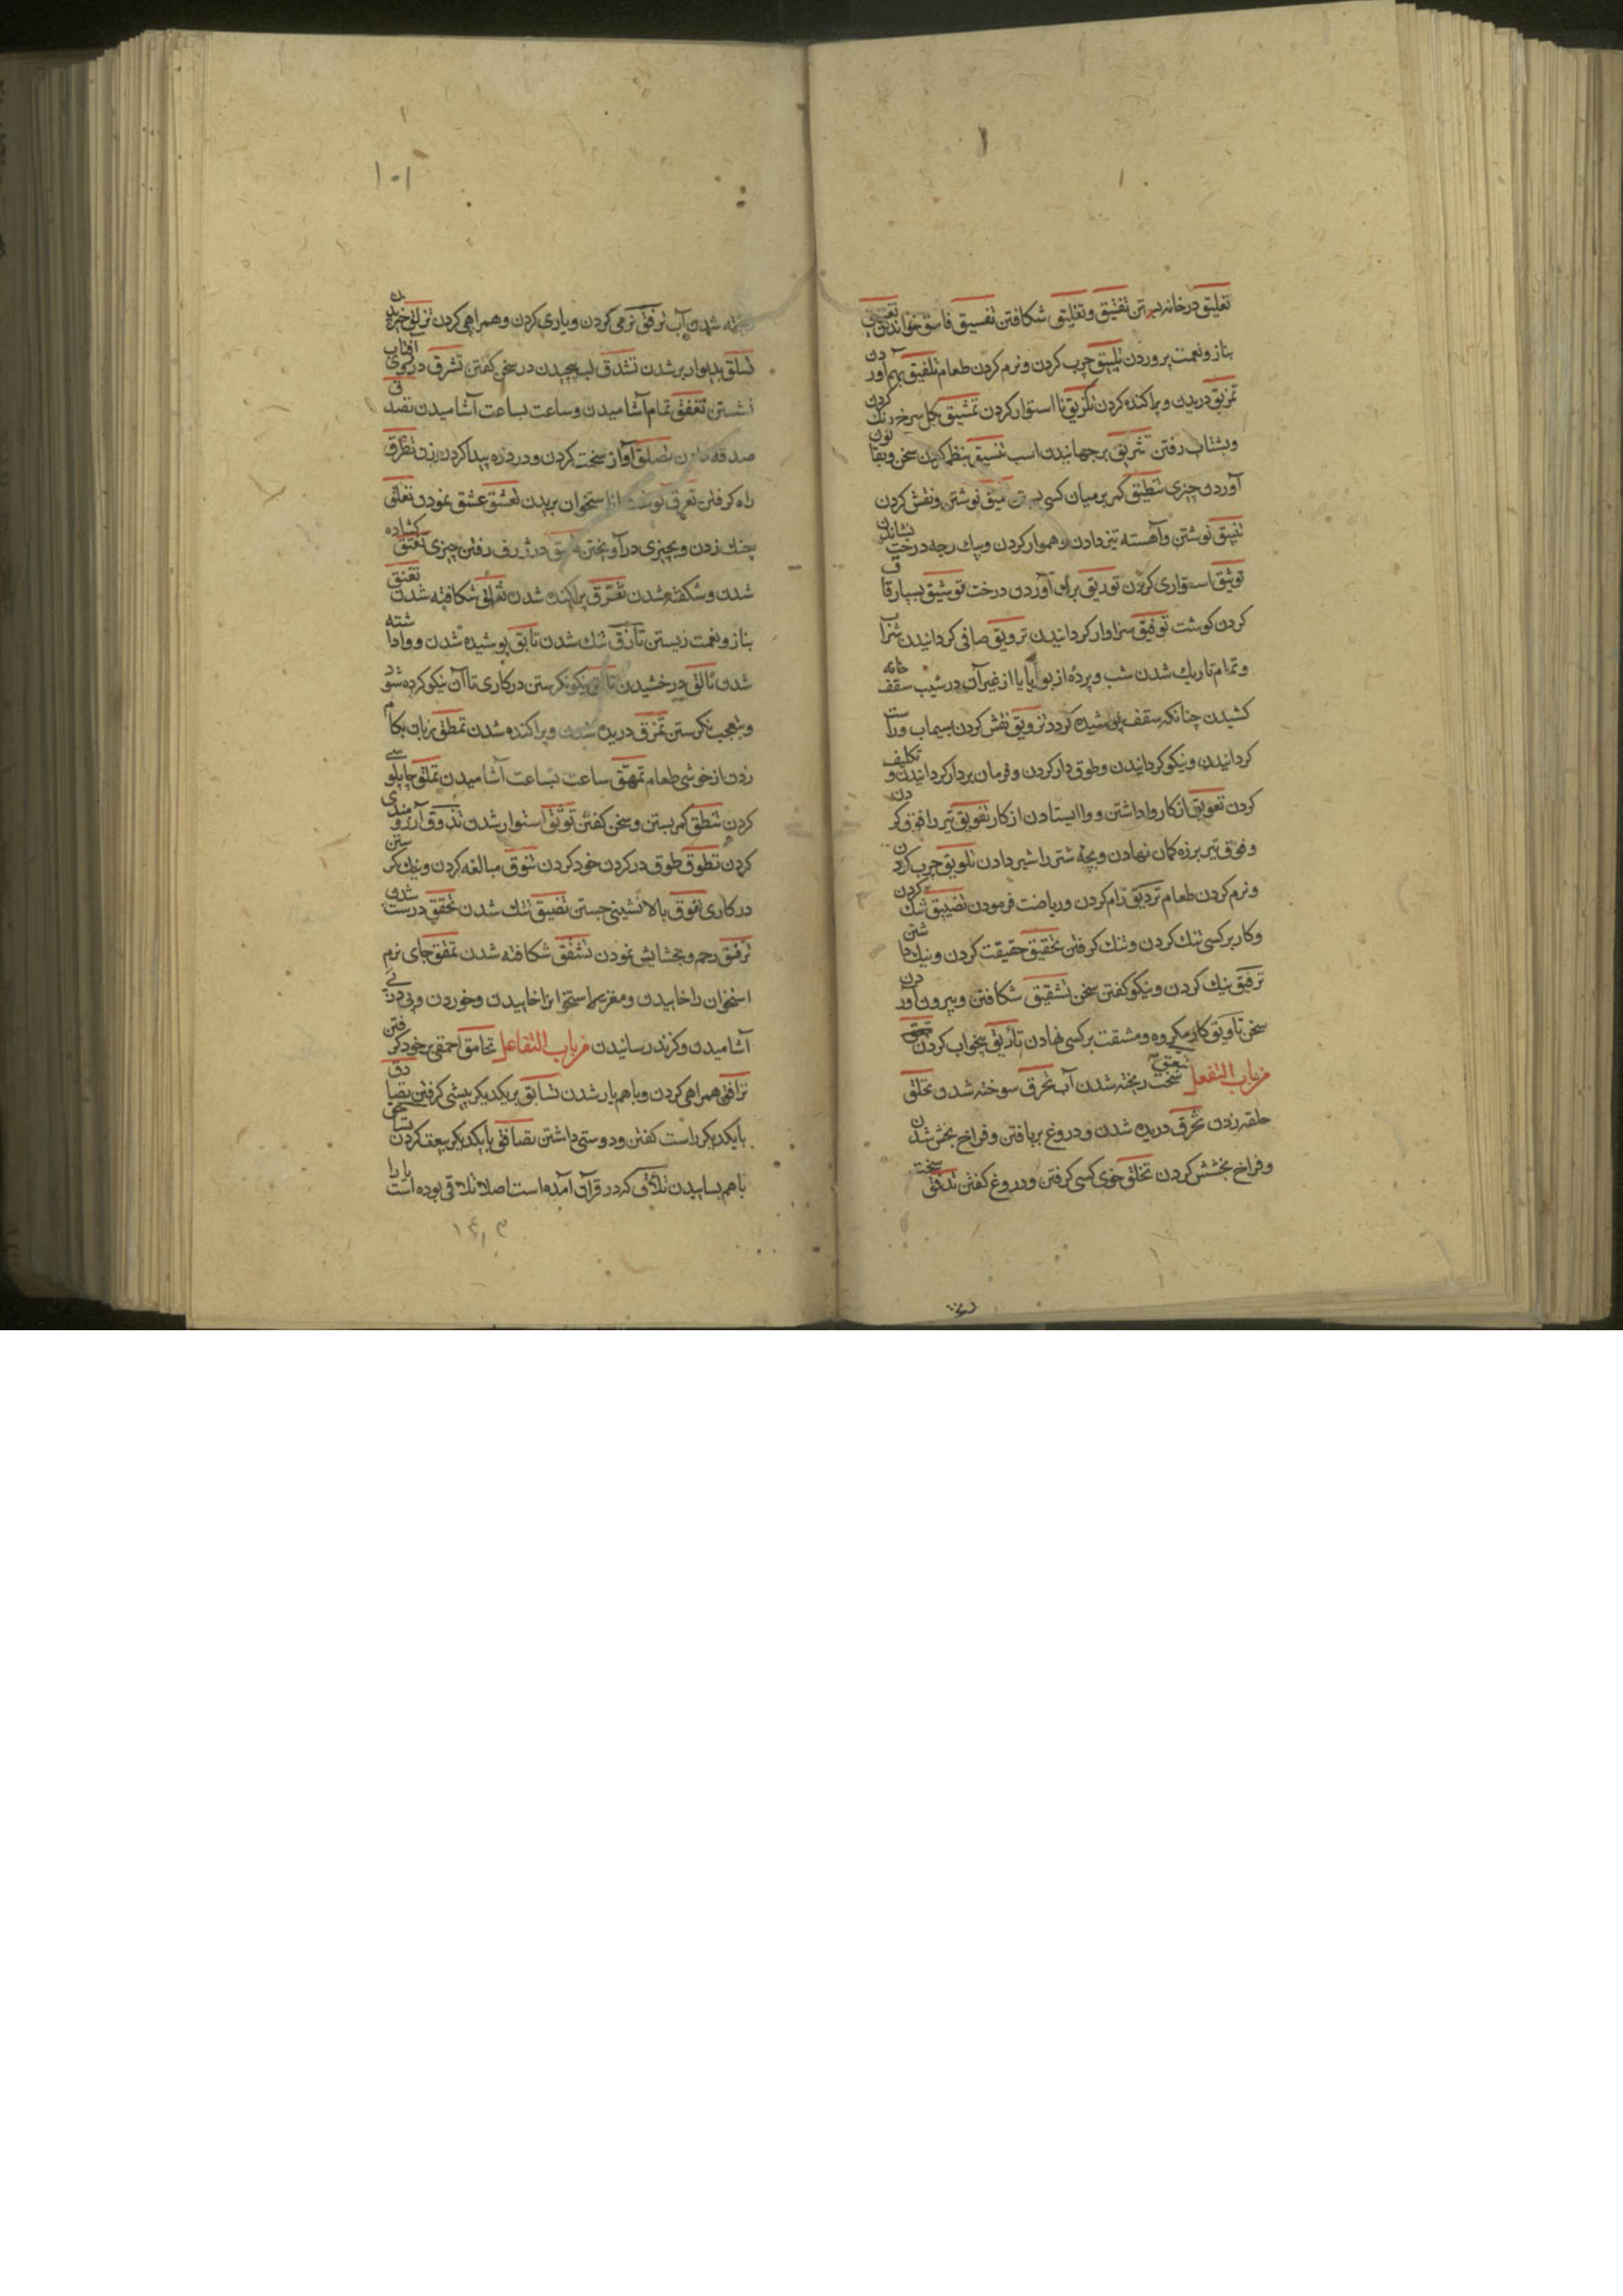 تغلیق در خانه بستن تفتیق وتفلیق شکافتن تفسیق فاسق خواندن تفنیق
بناز ونعمت پروردن تلبیق چرب کردن ونرم کردن طعام تلفیق بهم آوردن
تمزیق دریدن وپراکنده کردن نااستوار کردن تمشیق بکل سرخ رنک کردن
وبشتاب رفتن برجهانیدن اسب تنسیق بنظم کردن سخن
آوردن چیزی تنطیق کمر بر میان کسی بستن نوشتن ونقش کردن
تنیق نوشتن وآهسته تیز دادن وهموار کردن وبیک رجه درخت نشاندن
توثیق استواری کردن توریق برک آوردن درخت توشیق بسیار
کردن کوشت توفیق سزاوار کردانیدن ترویق صافی کردانیدن شراب
وتمام تاریک شدن شب وپرده از یا از غیر آن در شیب سقف خانه
کشیدن چنانکه سقف پوشیده کردد تزویق نقش کردن بسیماب وراست
کردانیدن ونیکو کردانیدن وطوق دار کردن وفرمان بردار کردانیدن وتکلیف
کردن تعویق از کار واداشتن ووا ایستادن از کار تفویق تیر را فوق کردن
وفوق تیر بر زه کمان نهادن وبچه شتر را شیر دادن تلویق چرب کردن
ونرم کردن طعام رام کردن وریاضت فرمودن تضییق تنک کردن
وکار بر کسی تنک کردن وتنک کرفتن تحقیق حقیقت کردن ونیک داشتن
ترقیق تنک کردن ونیکو کفتن سخن تشقیق شکافتن وبیرون آوردن
سخن تاویق کار مکروه ومشقت بر کسی نهادن تأریق بیخواب کردن
من باب التفعل سخت ریخته شدن آب تحرق سوخته شدن تحلق
حلقه زدن تخرق دریده شدن ودروغ بربافتن وفراخ بخش شدن
وفراخ بخشش کردن تخلق خوی کسی کرفتن ودروغ کفتن تدفق سخت
۱۰۱
ریخته شدن آب ترفق نرمی کردن ویاری کردن وهمراهی کردن تزلق
تسلق بدیوار بر شدن تشدق لب پیچیدن در سخن کفتن تشرق در آفتاب
نشستن تغفق تمام آشامیدن وساعت بساعت آشامیدن تصدق
صدقه دادن تصلق آواز سخت کردن ودر درد زه پیدا کردن زن تطرق
راه کرفتن تعرق کوشت از استخوان بریدن تعشق عشق نمودن تعلق
چنک زدن وبچیزی در آویختن در ژرف رفتن چیزی تفتق کشاده
شدن وشکفته شدن تفرق پراکنده شدن تفلق شکافته شدن تفنق
بناز ونعمت زیستن تأزق تنک شدن تابق پوشیده شدن وواداشته
شدن تألق درخشیدن نیکو نکرستن در کاری تا آن نیکو کرده شود
وبتعجب نکرستن تمزق دریده شدن وپراکنده شدن تمطق زبان بکام
زدن از خوشی طعام تمهق ساعت بساعت آشامیدن تملق چاپلوسی
کردن تنطق کمر بستن وسخن کفتن توثق استوار شدن تذوق آرزومندی
کردن تطوق طوق در کردن خود کردن تنوق مبالغه کردن ونیک نکرستن
در کاری تفوق بالانشینی جستن تضیق تنک شدن تحقق درست شدن
ترفق رحم وبخشایش نمودن تشقق شکافته شدن جای نرم
استخوان را خاییدن ومغز سر استخوانرا خاییدن وخوردن
آشامیدن وکزند رسانیدن من باب التفاعل تحامق احمقی بر خود کرفتن
ترافق همراهی کردن وباهم یار شدن تسابق بر یکدیکر پیشی کرفتن تصادق
بایکدیکر راست کفتن ودوستی داشتن تصافق بایکدیکر بیعت کردن
باهم بساییدن تلاق که در قرآن آمده است اصلا تلاقی بوده است یا را